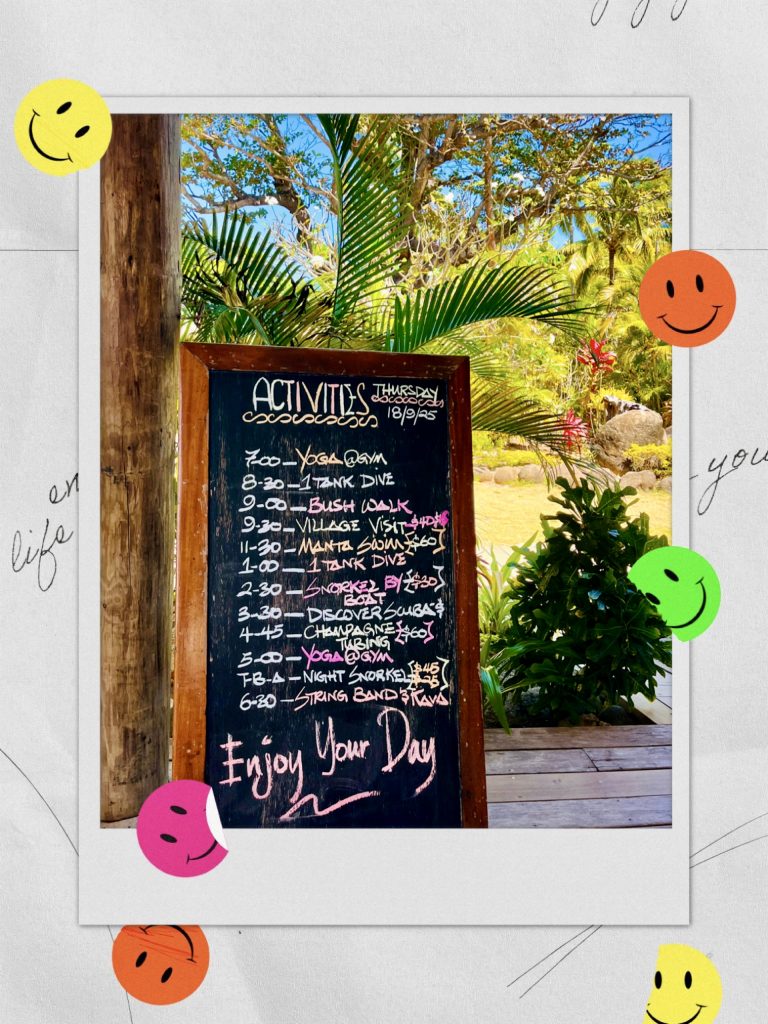 ACTIVITIES THURSDAY
18/9/25
7-00 — YOGA @ GYM
8-30 — 1 TANK DIVE
9-00 — BUSH WALK
9-30 — VILLAGE VISIT $40
11-30 — MANTA SWIM {$60}
1-00 — 1 TANK DIVE
2-30 — SNORKEL BY {$30}
BOAT
3-30 — DISCOVER SCUBA $
4-45 — CHAMPAGNE {$60}
TUBING
5-00 — YOGA @ GYM
T-B-A — NIGHT SNORKEL {$45}
6-30 — STRING BAND & KAVA
Enjoy Your Day
en
life
you